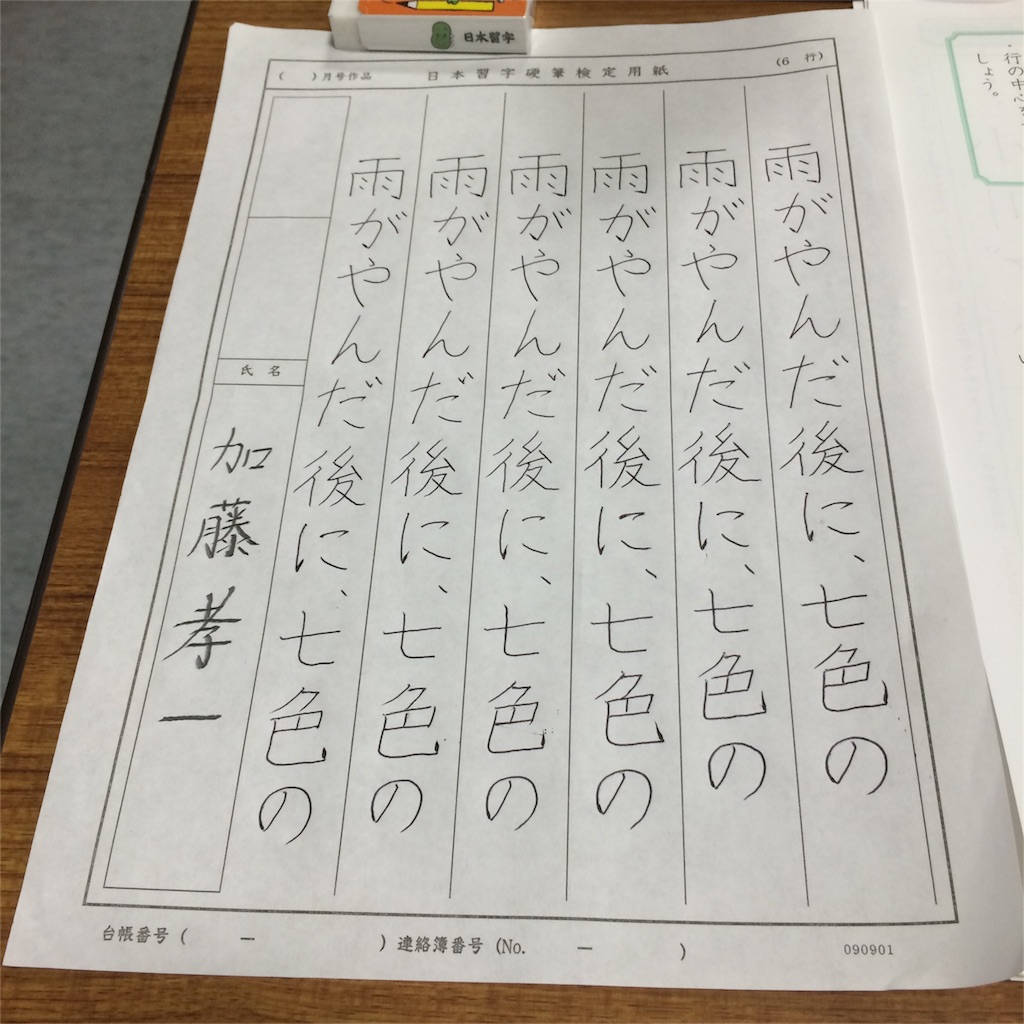 日本習字
(　)月号作品
日本習字硬筆検定用紙
(6 行)
雨がやんだ後に、七色の
雨がやんだ後に、七色の
雨がやんだ後に、七色の
雨がやんだ後に、七色の
雨がやんだ後に、七色の
雨がやんだ後に、七色の
氏名
加藤孝一
台帳番号 (　ー　) 連絡簿番号 (No.　ー　)
090901
・行の中心
しょう。